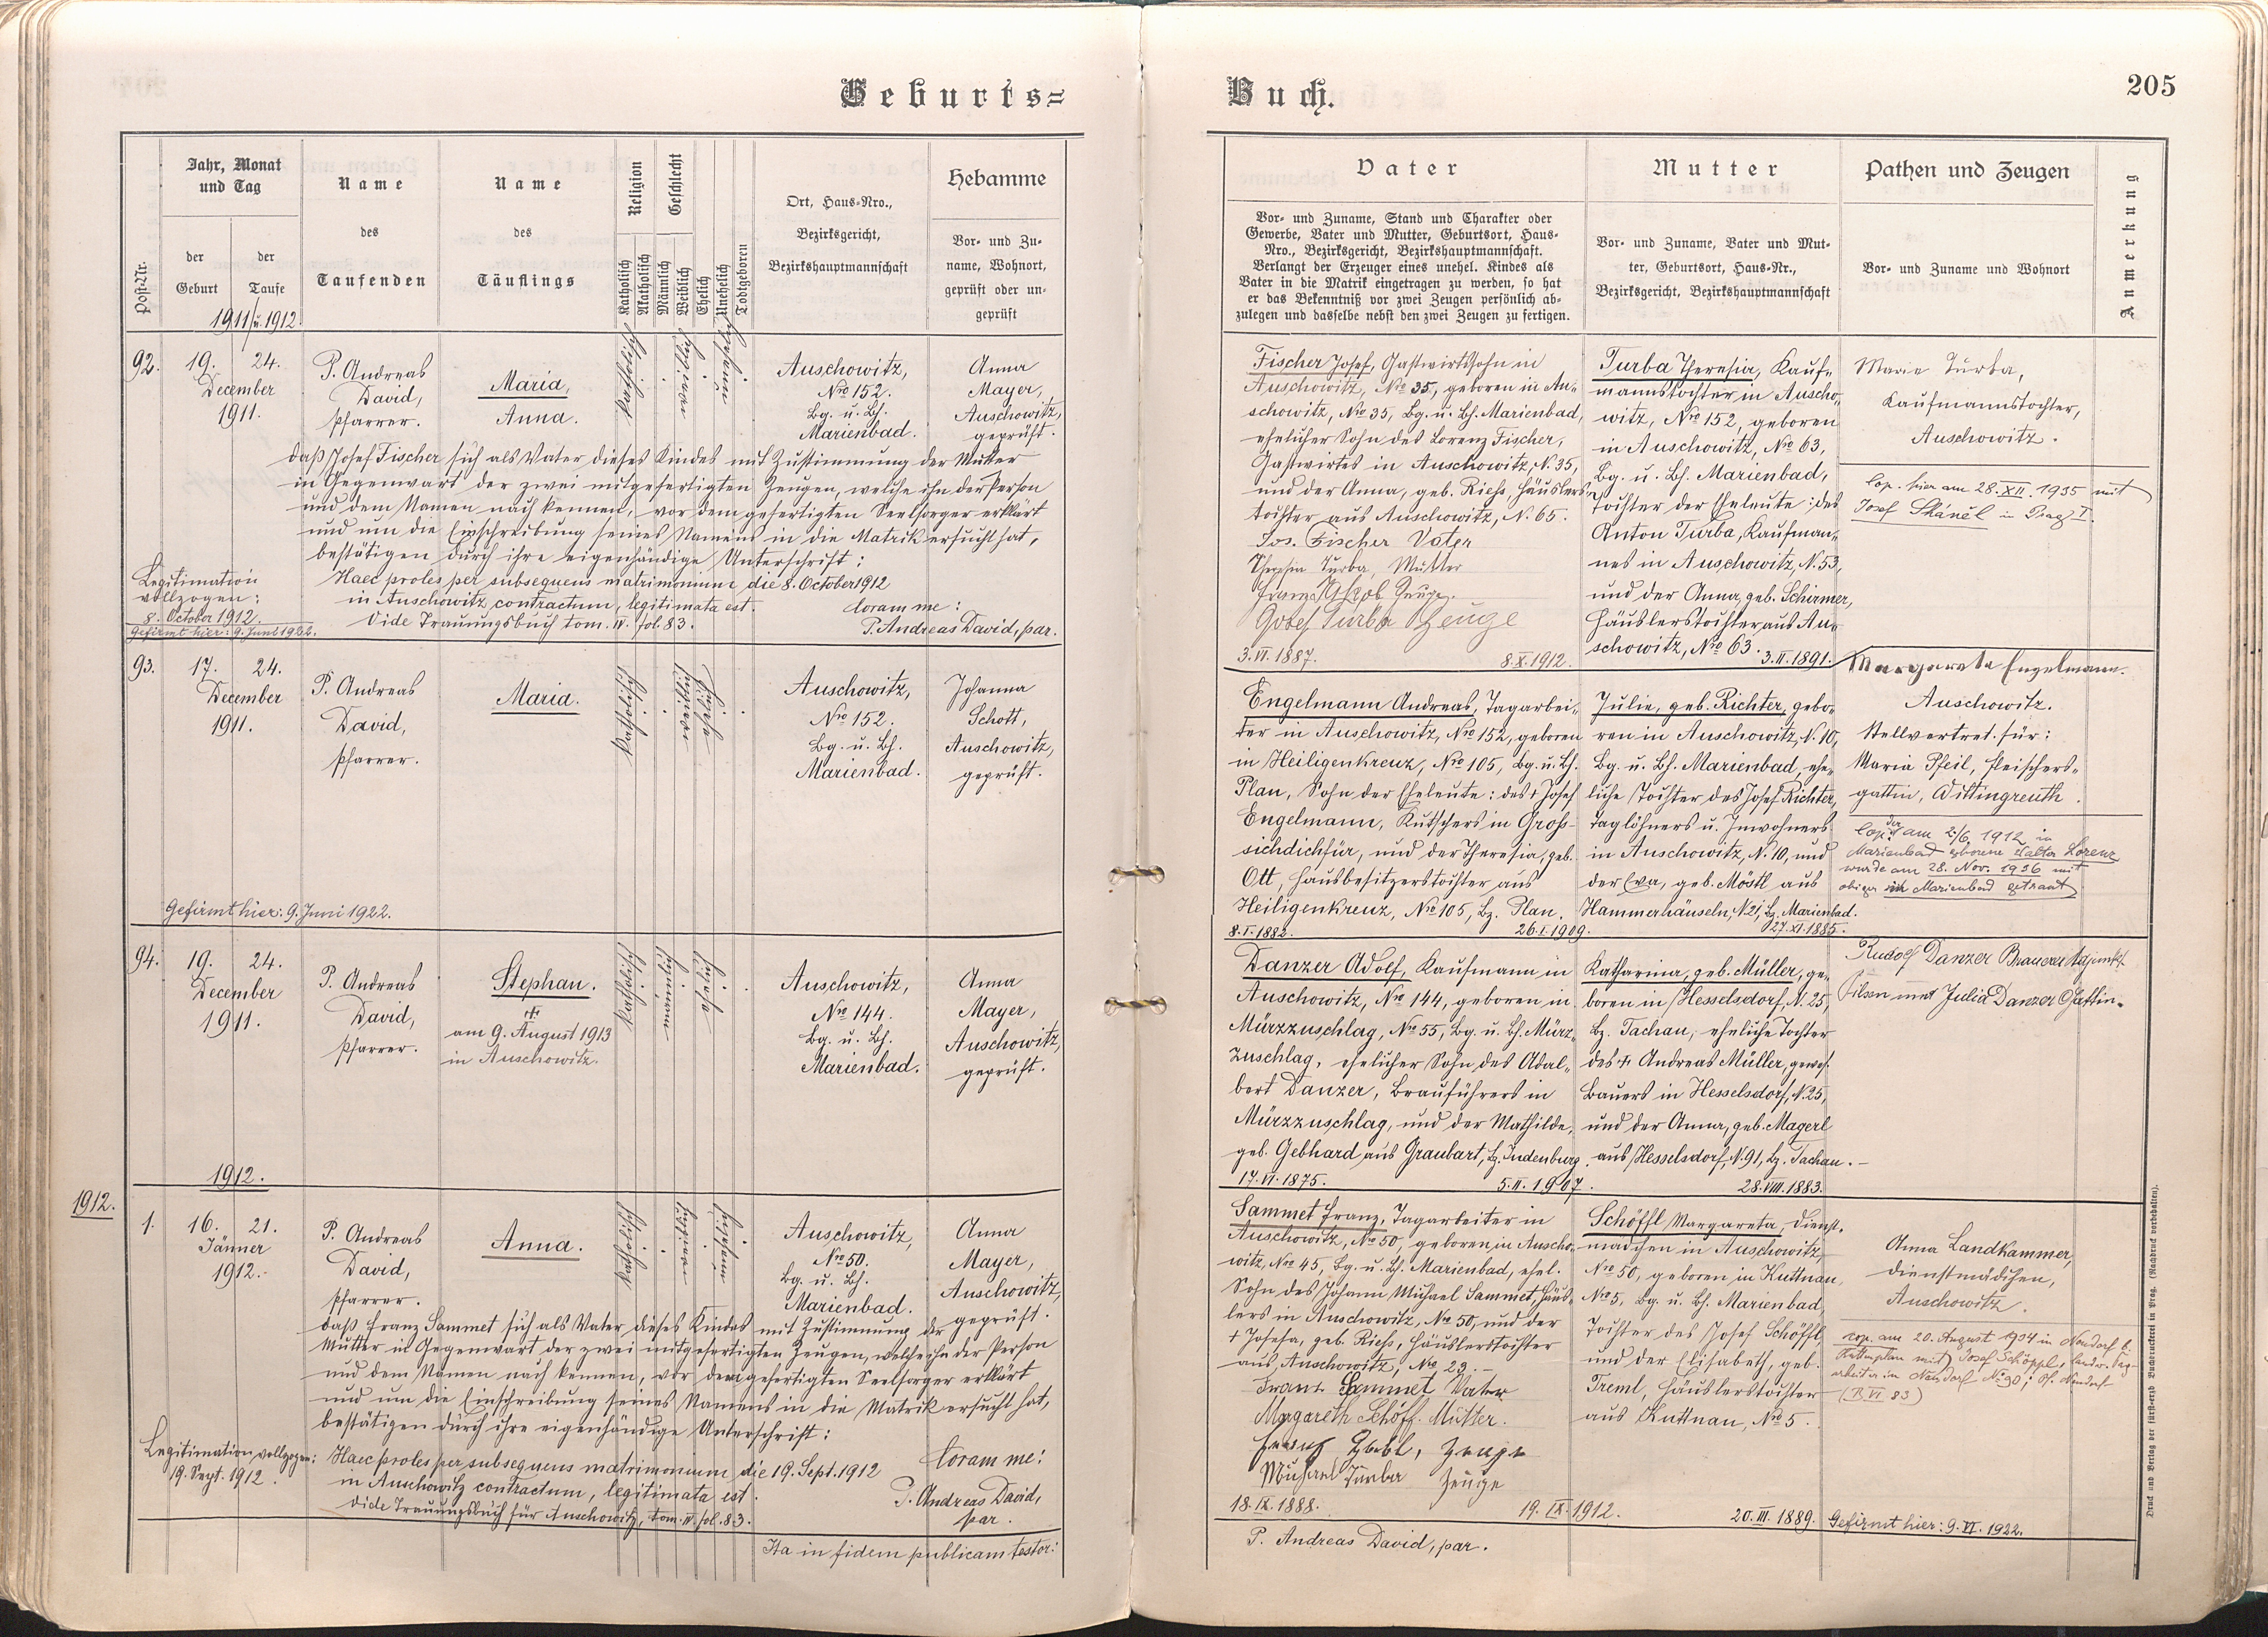 Geburts=
Buch.
205
Post-Nr.
Jahr, Monat
und Tag
der
Geburt
der
Taufe
1911 u. 1912.
Name
des
Taufenden
Name
des
Täuflings
Religion
Katholisch
Akatholisch
Geschlecht
Männlich
Weiblich
Ehelich
Unehelich
Todtgeboren
Ort, Haus-Nro.,
Bezirksgericht,
Bezirkshauptmannschaft
Hebamme
Vor- und Zu-
name, Wohnort,
geprüft oder un-
geprüft
Vater
Vor- und Zuname, Stand und Charakter oder
Gewerbe, Vater und Mutter, Geburtsort, Haus-
Nro., Bezirksgericht, Bezirkshauptmannschaft.
Verlangt der Erzeuger eines unehel. Kindes als
Vater in die Matrik eingetragen zu werden, so hat
er das Bekenntniß vor zwei Zeugen persönlich ab-
zulegen und dasselbe nebst den zwei Zeugen zu fertigen.
Mutter
Vor- und Zuname, Vater und Mut-
ter, Geburtsort, Haus-Nr.,
Bezirksgericht, Bezirkshauptmannschaft
Pathen und Zeugen
Vor- und Zuname und Wohnort
Anmerkung
92.
19.
24.
December
1911.
P. Andreas
David,
Pfarrer.
Maria,
Anna.
katholisch
weiblich
unehelich
Auschowitz,
Nro 152.
Bg. u. Bh.
Marienbad.
Anna
Mayer,
Auschowitz,
geprüft.
daß Josef Fischer sich als Vater dieses Kindes mit Zustimmung der Mutter
in Gegenwart der zwei mitgefertigten Zeugen, welche ihn der Person
und dem Namen nach kennen, vor dem gefertigten Seelsorger erklärt
und um die Einschreibung seines Namens in die Matrik ersucht hat,
bestätigen durch ihre eigenhändige Unterschrift:
Legitimation
vollzogen:
8. October 1912.
Gefirmt hier: 9. Juni 1922.
Haec proles per subsequens matrimonium die 8. October 1912
in Auschowitz contractum, legitimata est.
Coram me:
Vide Trauungsbuch tom. IV. fol. 83.
P. Andreas David, par.
Fischer Josef, Gastwirtssohn in
Auschowitz, Nro 35, geboren in Au-
schowitz, Nro 35, Bg. u. Bh. Marienbad,
ehelicher Sohn des Lorenz Fischer,
Gastwirtes in Auschowitz, N. 35,
und der Anna, geb. Richs, Häuslers-
tochter aus Auschowitz, N. 65.
Jos. Fischer Vater
Theresia Turba, Mutter
Franz Zeuge.
Josef Turba Zeuge
3. VI. 1887.
8. X. 1912.
Turba Theresia, Kauf-
mannstochter in Auscho-
witz, Nro 152, geboren
in Auschowitz, Nro 63,
Bg. u. Bh. Marienbad,
Tochter der Eheleute: des
Anton Turba, Kaufman-
nes in Auschowitz, N. 53,
und der Anna, geb. Schirmer,
Häuslerstochter aus Au-
schowitz, Nro 63.
3. II. 1891.
Marie Turba,
Kaufmannstochter,
Auschowitz.
Cop. hier am 28. XII. 1935 mit
Josef Skánèl in Prag I.
93.
17.
24.
December
1911.
P. Andreas
David,
Pfarrer.
Maria.
katholisch
weiblich
ehelich
Auschowitz,
Nro 152.
Bg. u. Bh.
Marienbad.
Johanna
Schott,
Auschowitz,
geprüft.
Gefirmt hier: 9. Juni 1922.
Engelmann Andreas, Tagarbei-
ter in Auschowitz, Nro 152, geboren
in Heiligenkreuz, Nro 105, Bg. u. Bh.
Plan, Sohn der Eheleute: des + Josef
Engelmann, Kutschers in Groß-
sichdichfür, und der Theresia, geb.
Ott, Hausbesitzerstochter aus
Heiligenkreuz, Nro 105, Bz. Plan.
8. I. 1882.
26. I. 1909.
Julie, geb. Richter, gebo-
ren in Auschowitz, N. 10,
Bg. u. Bh. Marienbad, ehe-
liche Tochter des Josef Richter,
Taglöhners u. Inwohners
in Auschowitz, N. 10, und
der Eva, geb. Möstl aus
Hammerhäuseln, N. 21, Bz. Marienbad.
27. XI. 1885.
Margareta Engelmann.
Auschowitz.
Stellvertret. für:
Maria Pfeil, Fleischers-
gattin, Wittingreuth.
Cop. der am 2/6 1912 in
Marienbad geborene Walter Lorenz
wurde am 28. Nov. 1936 mit
obiger in Marienbad getraut
94.
19.
24.
December
1911.
P. Andreas
David,
Pfarrer.
Stephan.
+
am 9. August 1913
in Auschowitz.
katholisch
männlich
ehelich
Auschowitz,
Nro 144.
Bg. u. Bh.
Marienbad.
Anna
Mayer,
Auschowitz,
geprüft.
Danzer Adolf, Kaufmann in
Auschowitz, Nro 144, geboren in
Mürzzuschlag, Nro 55, Bg. u. Bh. Mürz-
zuschlag, ehelicher Sohn des Adal-
bert Danzer, Brauführers in
Mürzzuschlag, und der Mathilde,
geb. Gebhard aus Graubart, Bz. Judenburg.
17. VI. 1875.
5. II. 1907.
Katharina, geb. Müller, ge-
boren in Hesselsdorf, N. 25,
Bz. Tachau, eheliche Tochter
des + Andreas Müller, gewes.
Bauers in Hesselsdorf, N. 25,
und der Anna, geb. Magerl
aus Hesselsdorf, N. 91, Bz. Tachau.
28. VIII. 1883.
Rudolf Danzer Brauerei Adjunkt
Pilsen mit Julia Danzer Gattin.
1912.
1912.
1.
16.
21.
Jänner
1912.
P. Andreas
David,
Pfarrer.
Anna.
katholisch
weiblich
unehelich
Auschowitz,
Nro 50.
Bg. u. Bh.
Marienbad.
Anna
Mayer,
Auschowitz,
geprüft.
daß Franz Sammet sich als Vater dieses Kindes mit Zustimmung der
Mutter in Gegenwart der zwei mitgefertigten Zeugen, welche ihn der Person
und dem Namen nach kennen, vor dem gefertigten Seelsorger erklärt
und um die Einschreibung seines Namens in die Matrik ersucht hat,
bestätigen durch ihre eigenhändige Unterschrift:
Legitimation vollzogen:
19. Sept. 1912.
Haec proles per subsequens matrimonium die 19. Sept. 1912
in Auschowitz contractum, legitimata est.
Vide Trauungsbuch für Auschowitz, tom. IV. fol. 83.
Coram me:
P. Andreas David,
par.
Ita in fidem publicam testor:
Sammet Franz, Tagarbeiter in
Auschowitz, Nro 50, geboren in Auscho-
witz, Nro 45, Bg. u. Bh. Marienbad, ehel.
Sohn des Johann Michael Sammet, Häus-
lers in Auschowitz, Nro 50, und der
+ Josefa, geb. Richs, Häuslerstochter
aus Auschowitz, Nro 29.
Franz Sammet Vater
Margareth Schöff. Mutter.
Zeuge
Michael Turba Zeuge
18. IX. 1888.
19. IX. 1912.
P. Andreas David, par.
Schöffl Margareta, Dienst-
mädchen in Auschowitz,
Nro 50, geboren in Kuttnau,
Nro 5, Bg. u. Bh. Marienbad,
Tochter des Josef Schöffl
und der Elisabeth, geb.
Treml, Häuslerstochter
aus Kuttnau, Nro 5.
20. III. 1889.
Anna Landkammer,
Dienstmädchen,
Auschowitz.
cop. am 20. August 1934 in Neudorf b.
mit Josef Schöppl,
arbeiter in Neudorf No 30, Neudorf
(B. VI 83)
Gefirmt hier: 9. VI. 1922.
Druck und Verlag der fürst-erzb Buchdruckerei in Prag. (Nachdruck vorbehalten).